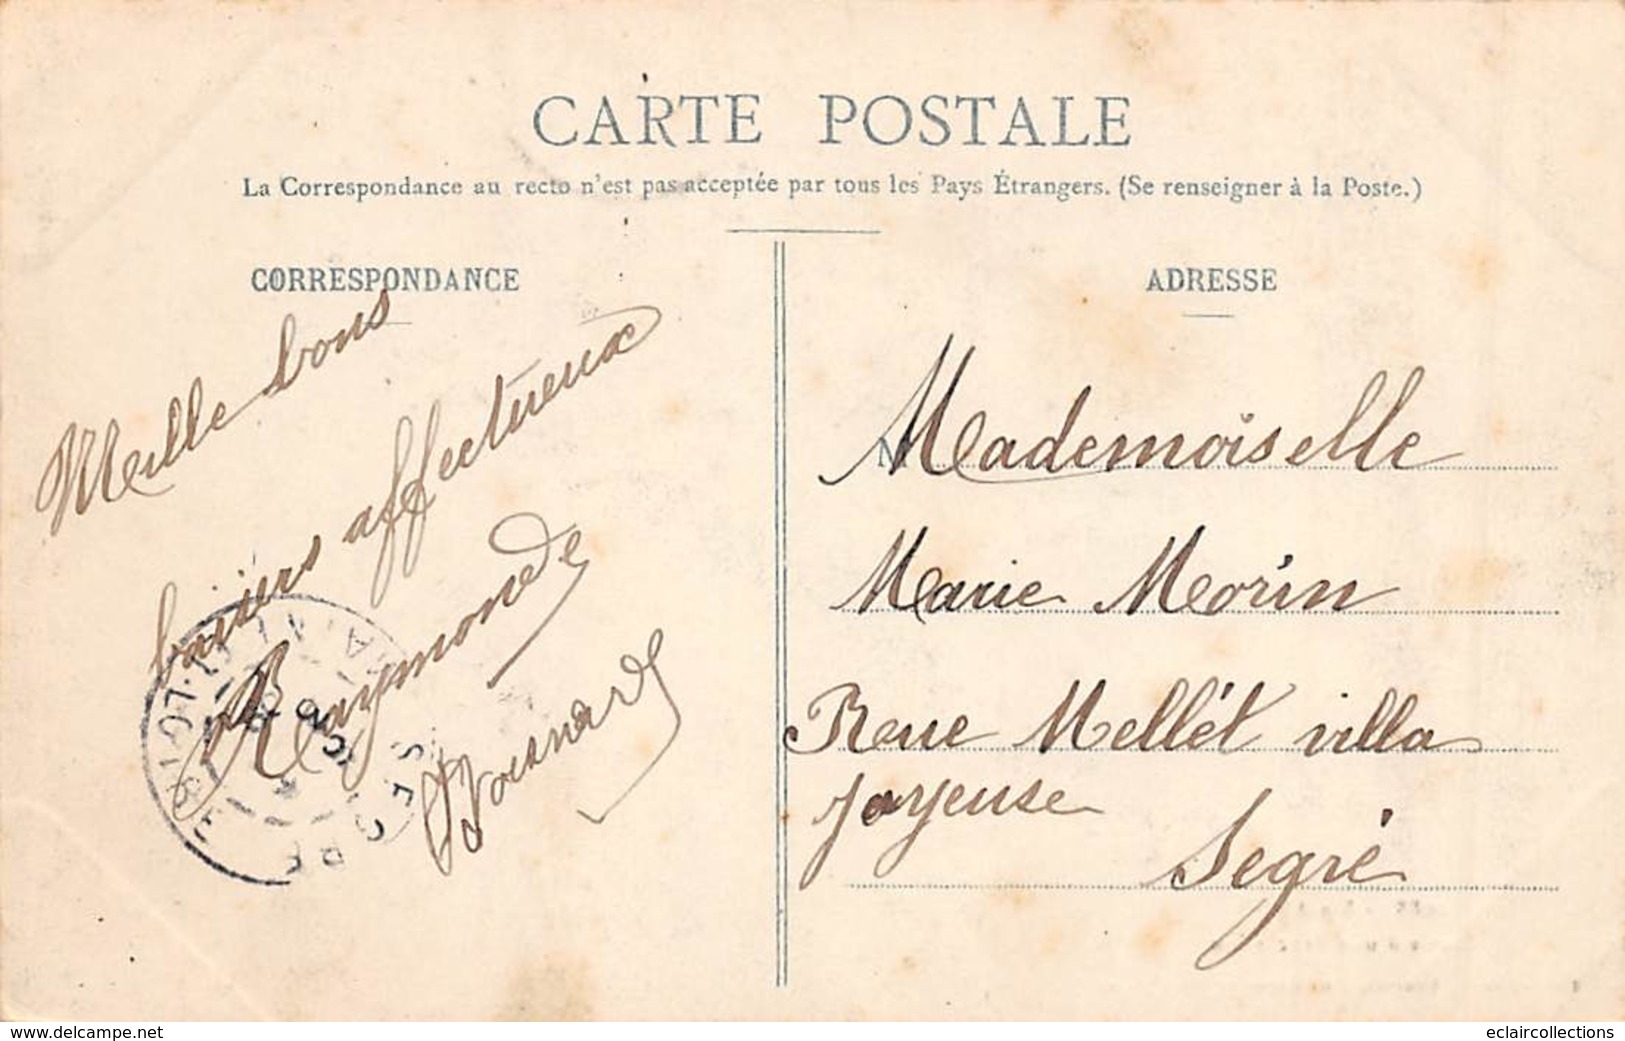 CARTE POSTALE
La Correspondance au recto n'est pas acceptée par tous les Pays Étrangers. (Se renseigner à la Poste.)
CORRESPONDANCE
Meille bons
baisers affectueux
Raymonde
ADRESSE
Mademoiselle
Marie Morin
Rue Mellét villa
joyeuse
Segré
SEGRE
MAINE-ET-LOIRE
www.delcampe.net
eclaircollections